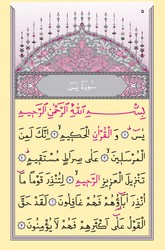 ٥
سُورَةُ يسٓ
بِسْمِ اللّٰهِ الرَّحْمٰنِ الرَّحٖيمِ
يسٓ ﴿١﴾ وَالْقُرْاٰنِ الْحَكٖيمِ ﴿٢﴾ اِنَّكَ لَمِنَ
الْمُرْسَلٖينَ ﴿٣﴾ عَلٰى صِرَاطٍ مُسْتَقٖيمٍ ﴿٤﴾
تَنْزٖيلَ الْعَزٖيزِ الرَّحٖيمِ ﴿٥﴾ لِتُنْذِرَ قَوْمًا مَٓا
اُنْذِرَ اٰبَٓاؤُ۬هُمْ فَهُمْ غَافِلُونَ ﴿٦﴾ لَقَدْ حَقَّ
الْقَوْلُ عَلٰٓى اَكْثَرِهِمْ فَهُمْ لَا يُؤْمِنُونَ ﴿٧﴾